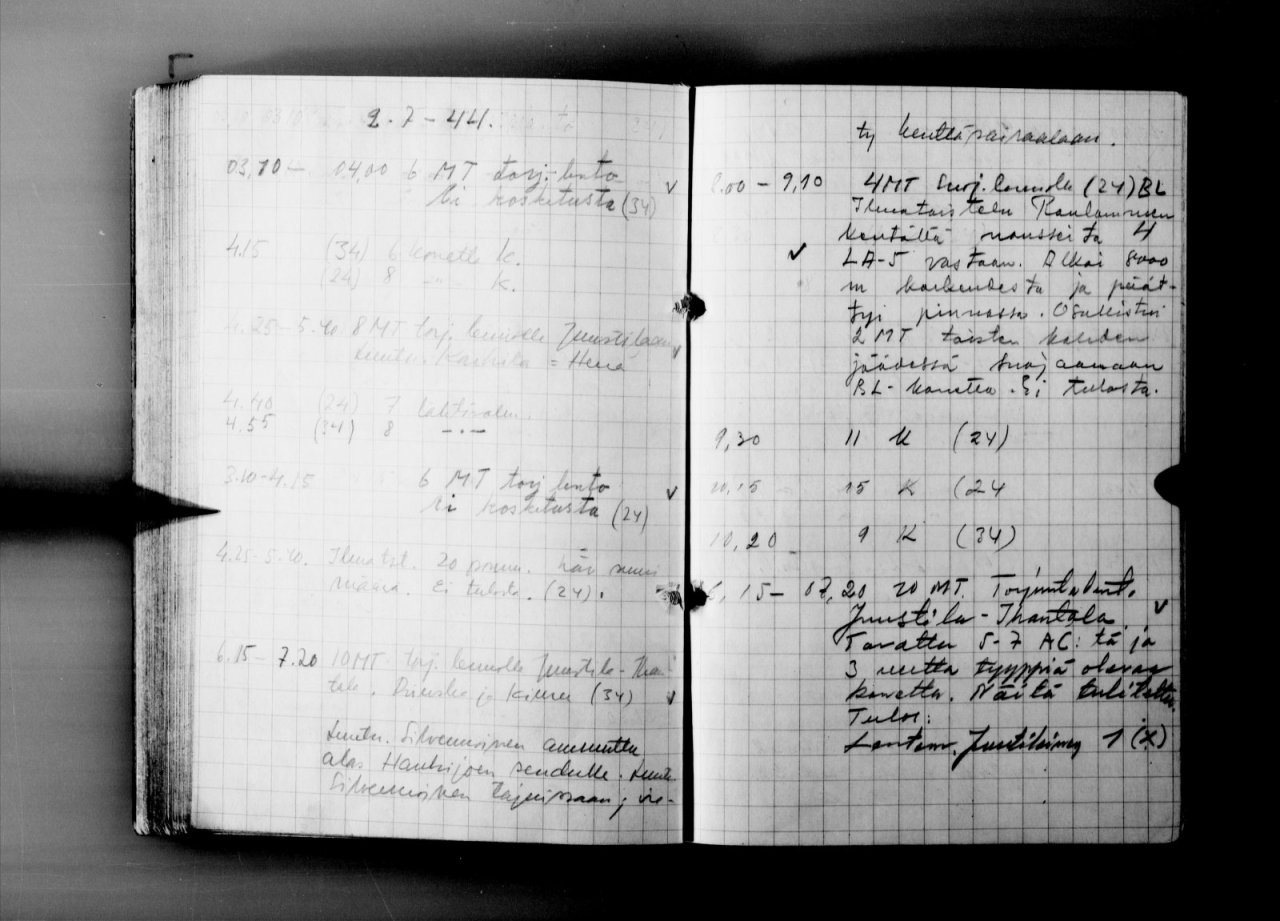 2.7-44.
03,10- 04,00 6 MT torj.lento
Ei kosketusta (34)
4.15 (34) 6 konetta K.
(24) 8 -"- K.
4.25-5.40 8 MT torj. lennolla Juustilaan
4.40 (24) 7
4.55 (34) 8 -.-
3.10-4.15 6 MT torj lento
Ei kosketusta (24)
4.25-5.40. 20 häv
Ei tulosta. (24).
6.15-7.20 10 MT torj. lennolla Juustila-Ihan-
tala. ja (34)
Luutn. Silvennoinen ammuttu
alas Hanhijoen seudulle. Luutn.
Silvennoinen tajuissaan, vie-
ty kenttäsairaalaan.
8.00 - 9,10 4MT suoj.lennolla (24) BL
Ilmataistelu
kentältä nousseita 4
LA-5 vastaan. Alkoi 8000
m korkeudesta ja päät-
tyi pinnassa. Osallistui
2 MT toisten kahden
jäädessä suojaamaan
BL-konetta. Ei tulosta.
9,30 11 K (24)
10,15 15 K (24
10,20 9 K (34)
6,15- 07,20 10 MT. Torjuntalent.
Juustila-Ihantala.
Tavattu 5-7 AC:tä ja
3 uutta tyyppiä olevaa
konetta. Näitä tulitettu.
Tulos:
Lentom. 1 (x)